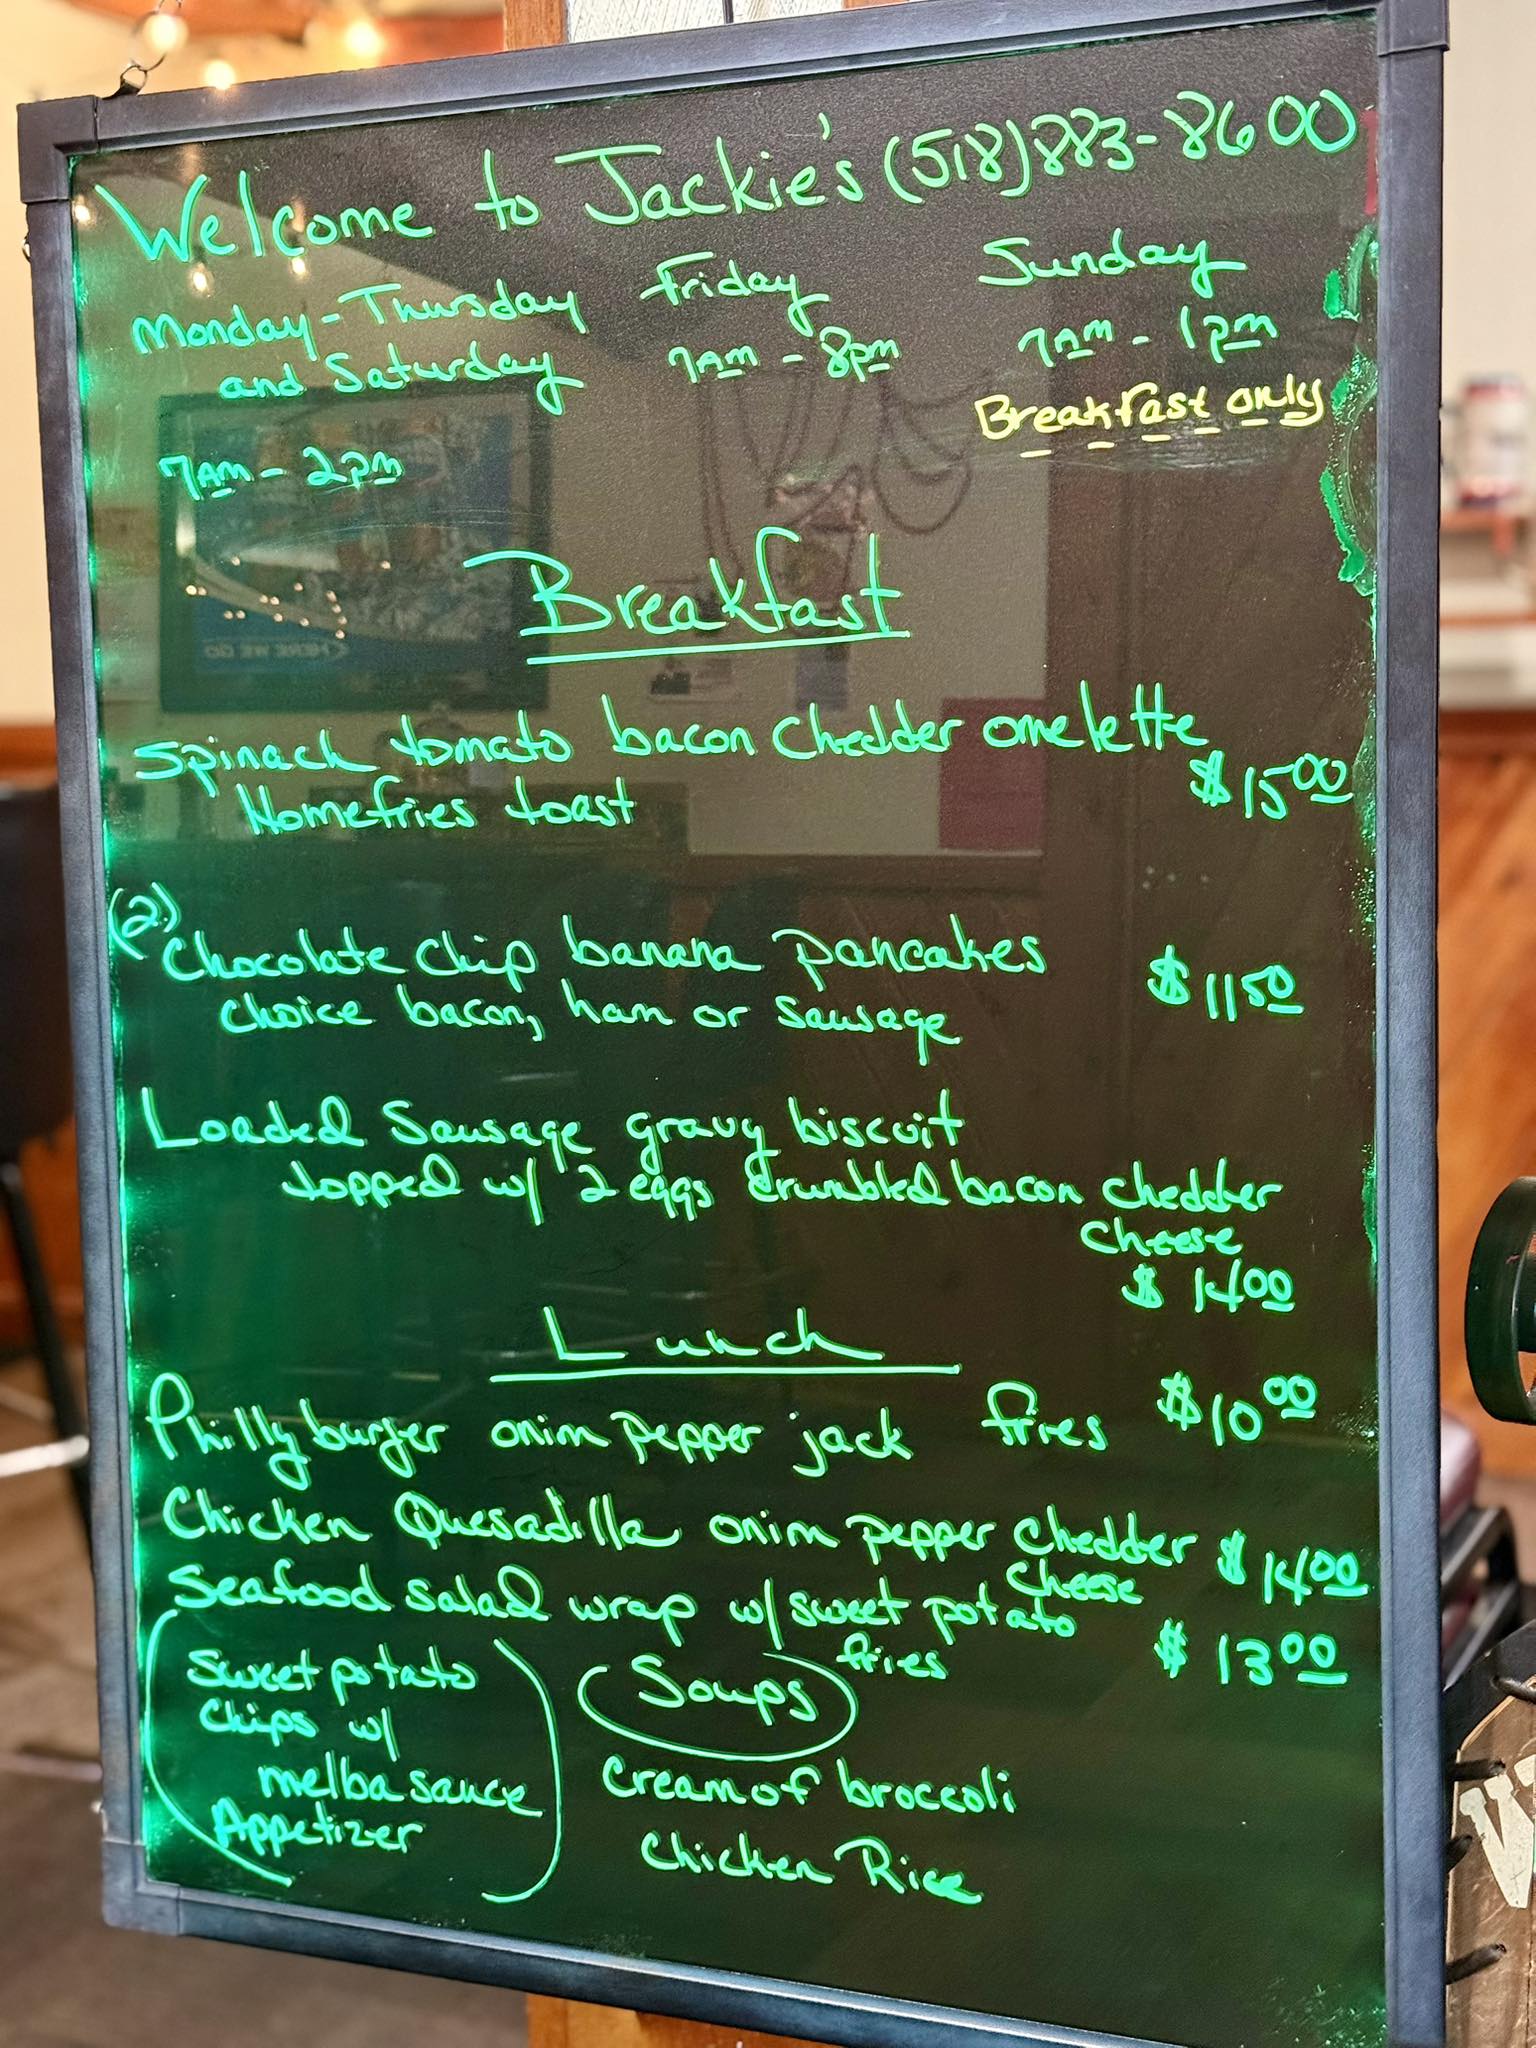 Welcome to Jackie's (518)883-8600
Monday-Thursday
and Saturday
7AM - 2pm
Friday
7AM - 8pm
Sunday
7AM - 1pm
Breakfast only
Breakfast
Spinach tomato bacon Chedder omelette
Homefries toast
$1500
(2)
Chocolate Chip banana pancakes
Choice bacon, ham or Sausage
$1150
Loaded Sausage gravy biscuit
topped w/ 2 eggs Crumbled bacon Chedder
Cheese
$1400
Lunch
Philly burger onion pepper jack fries $1000
Chicken Quesadilla onion pepper Chedder
Cheese
$1400
Seafood Salad wrap w/ sweet potato
fries
$1300
Sweet potato
Chips w/
melba sauce
Appetizer
Soups
Cream of broccoli
Chicken Rice